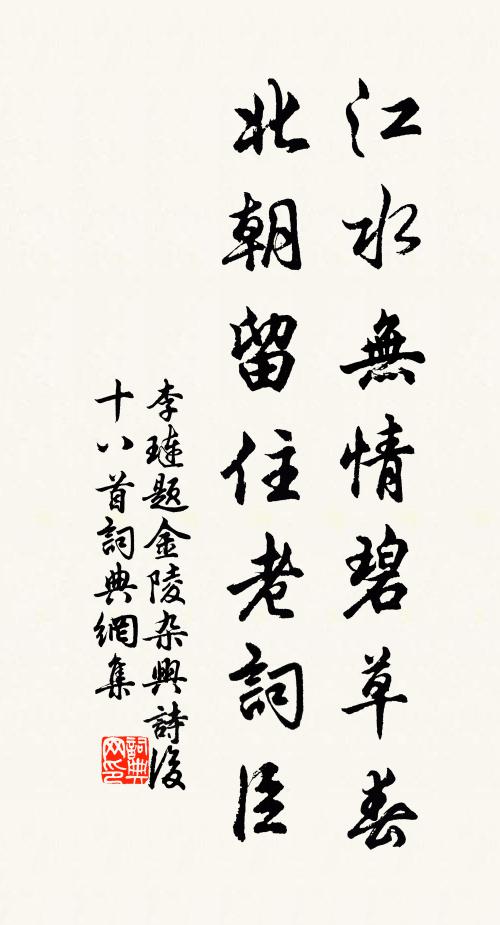 江水無情碧草春
北朝留住老詞臣
李璉題金陵杂興詩後
十八首詞典網集
詞典
网印